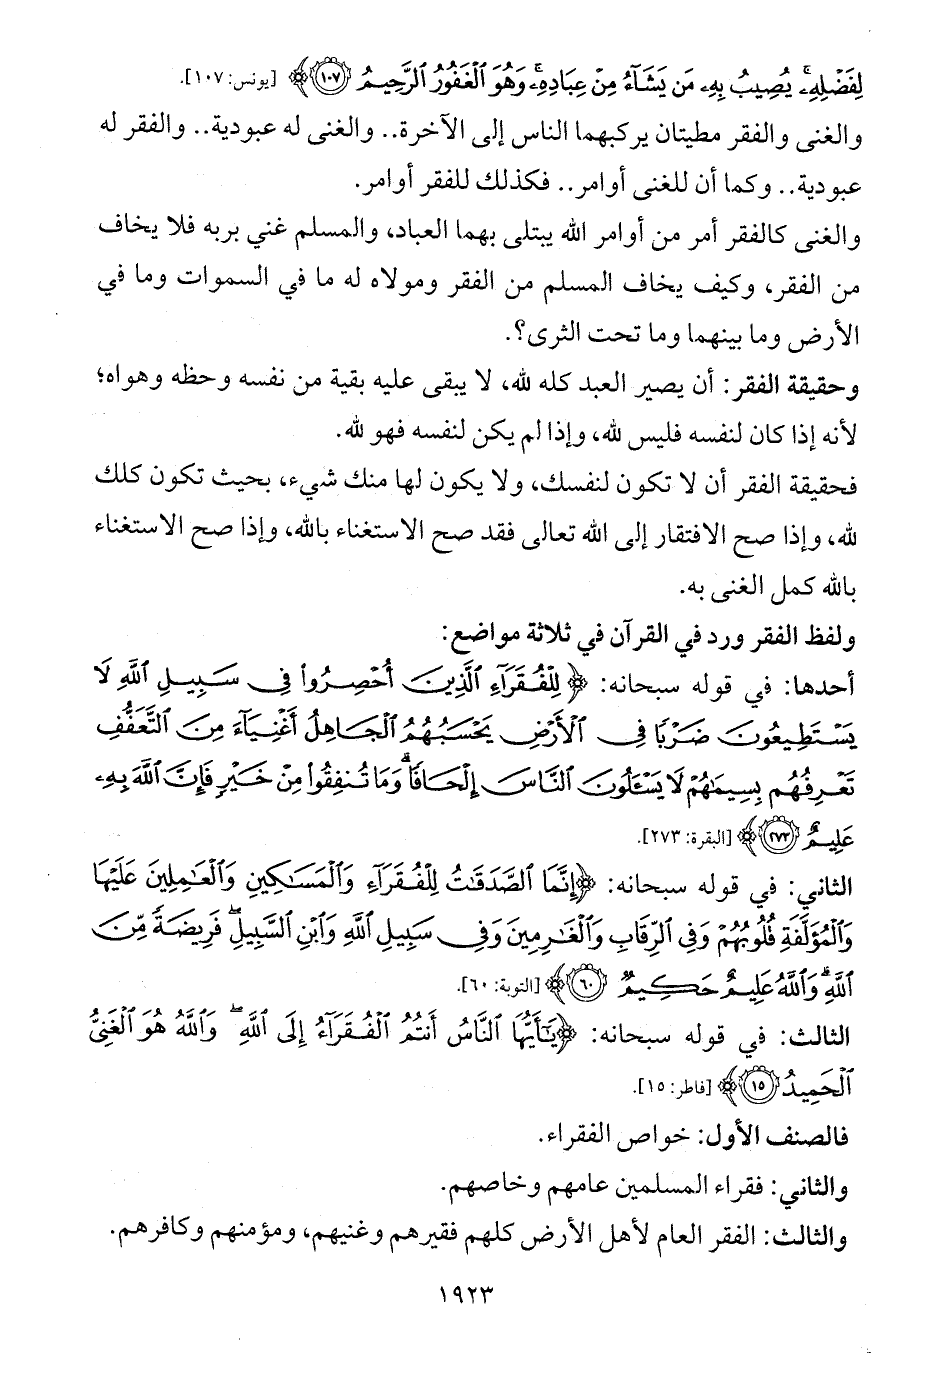 لِفَضْلِهِۦۚ يُصِيبُ بِهِۦ مَن يَشَآءُ مِنْ عِبَادِهِۦۚ وَهُوَ ٱلْغَفُورُ ٱلرَّحِيمُ ١٠٧﴾ [يونس: ١٠٧].
والغنى والفقر مطيتان يركبهما الناس إلى الآخرة.. والغنى له عبودية.. والفقر له
عبودية.. وكما أن للغنى أوامر.. فكذلك للفقر أوامر.
والغنى كالفقر أمر من أوامر الله يبتلى بهما العباد، والمسلم غني بربه فلا يخاف
من الفقر، وكيف يخاف المسلم من الفقر ومولاه له ما في السموات وما في
الأرض وما بينهما وما تحت الثرى؟.
وحقيقة الفقر: أن يصير العبد كله لله، لا يبقى عليه بقية من نفسه وحظه وهواه؛
لأنه إذا كان لنفسه فليس لله، وإذا لم يكن لنفسه فهو لله.
فحقيقة الفقر أن لا تكون لنفسك، ولا يكون لها منك شيء، بحيث تكون كلك
لله، وإذا صح الافتقار إلى الله تعالى فقد صح الاستغناء بالله، وإذا صح الاستغناء
بالله كمل الغنى به.
ولفظ الفقر ورد في القرآن في ثلاثة مواضع:
أحدها: في قوله سبحانه: ﴿لِلْفُقَرَآءِ ٱلَّذِينَ أُحْصِرُوا۟ فِى سَبِيلِ ٱللَّهِ لَا
يَسْتَطِيعُونَ ضَرْبًا فِى ٱلْأَرْضِ يَحْسَبُهُمُ ٱلْجَاهِلُ أَغْنِيَآءَ مِنَ ٱلتَّعَفُّفِ
تَعْرِفُهُم بِسِيمَٰهُمْ لَا يَسْـَٔلُونَ ٱلنَّاسَ إِلْحَافًاۗ وَمَا تُنفِقُوا۟ مِنْ خَيْرٍ فَإِنَّ ٱللَّهَ بِهِۦ
عَلِيمٌ ٢٧٣﴾ [البقرة: ٢٧٣].
الثاني: في قوله سبحانه: ﴿إِنَّمَا ٱلصَّدَقَٰتُ لِلْفُقَرَآءِ وَٱلْمَسَٰكِينِ وَٱلْعَٰمِلِينَ عَلَيْهَا
وَٱلْمُؤَلَّفَةِ قُلُوبُهُمْ وَفِى ٱلرِّقَابِ وَٱلْغَٰرِمِينَ وَفِى سَبِيلِ ٱللَّهِ وَٱبْنِ ٱلسَّبِيلِۖ فَرِيضَةً مِّنَ
ٱللَّهِۗ وَٱللَّهُ عَلِيمٌ حَكِيمٌ ٦٠﴾ [التوبة: ٦٠].
الثالث: في قوله سبحانه: ﴿يَٰٓأَيُّهَا ٱلنَّاسُ أَنتُمُ ٱلْفُقَرَآءُ إِلَى ٱللَّهِۖ وَٱللَّهُ هُوَ ٱلْغَنِىُّ
ٱلْحَمِيدُ ١٥﴾ [فاطر: ١٥].
فالصنف الأول: خواص الفقراء.
والثاني: فقراء المسلمين عامهم وخاصهم.
والثالث: الفقر العام لأهل الأرض كلهم فقيرهم وغنيهم، ومؤمنهم وكافرهم.
١٩٢٣